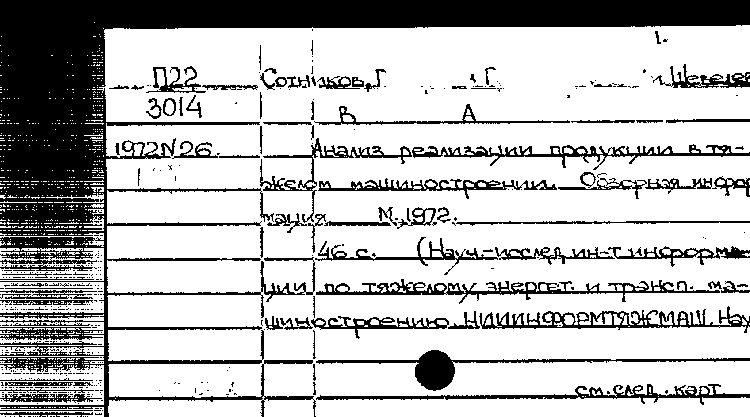 1.
П22 Сотников, Г
3014 В А
1972N26. Анализ реализации продукции в тя-
желом машиностроении. Обзорная инфор
мация. М., 1972.
46 с. (Науч.-исслед. ин-т информа-
ции по тяжелому, энергет. и трансп. ма-
шиностроению. НИИИНФОРМТЯЖМАШ. Нау
см. след. карт.